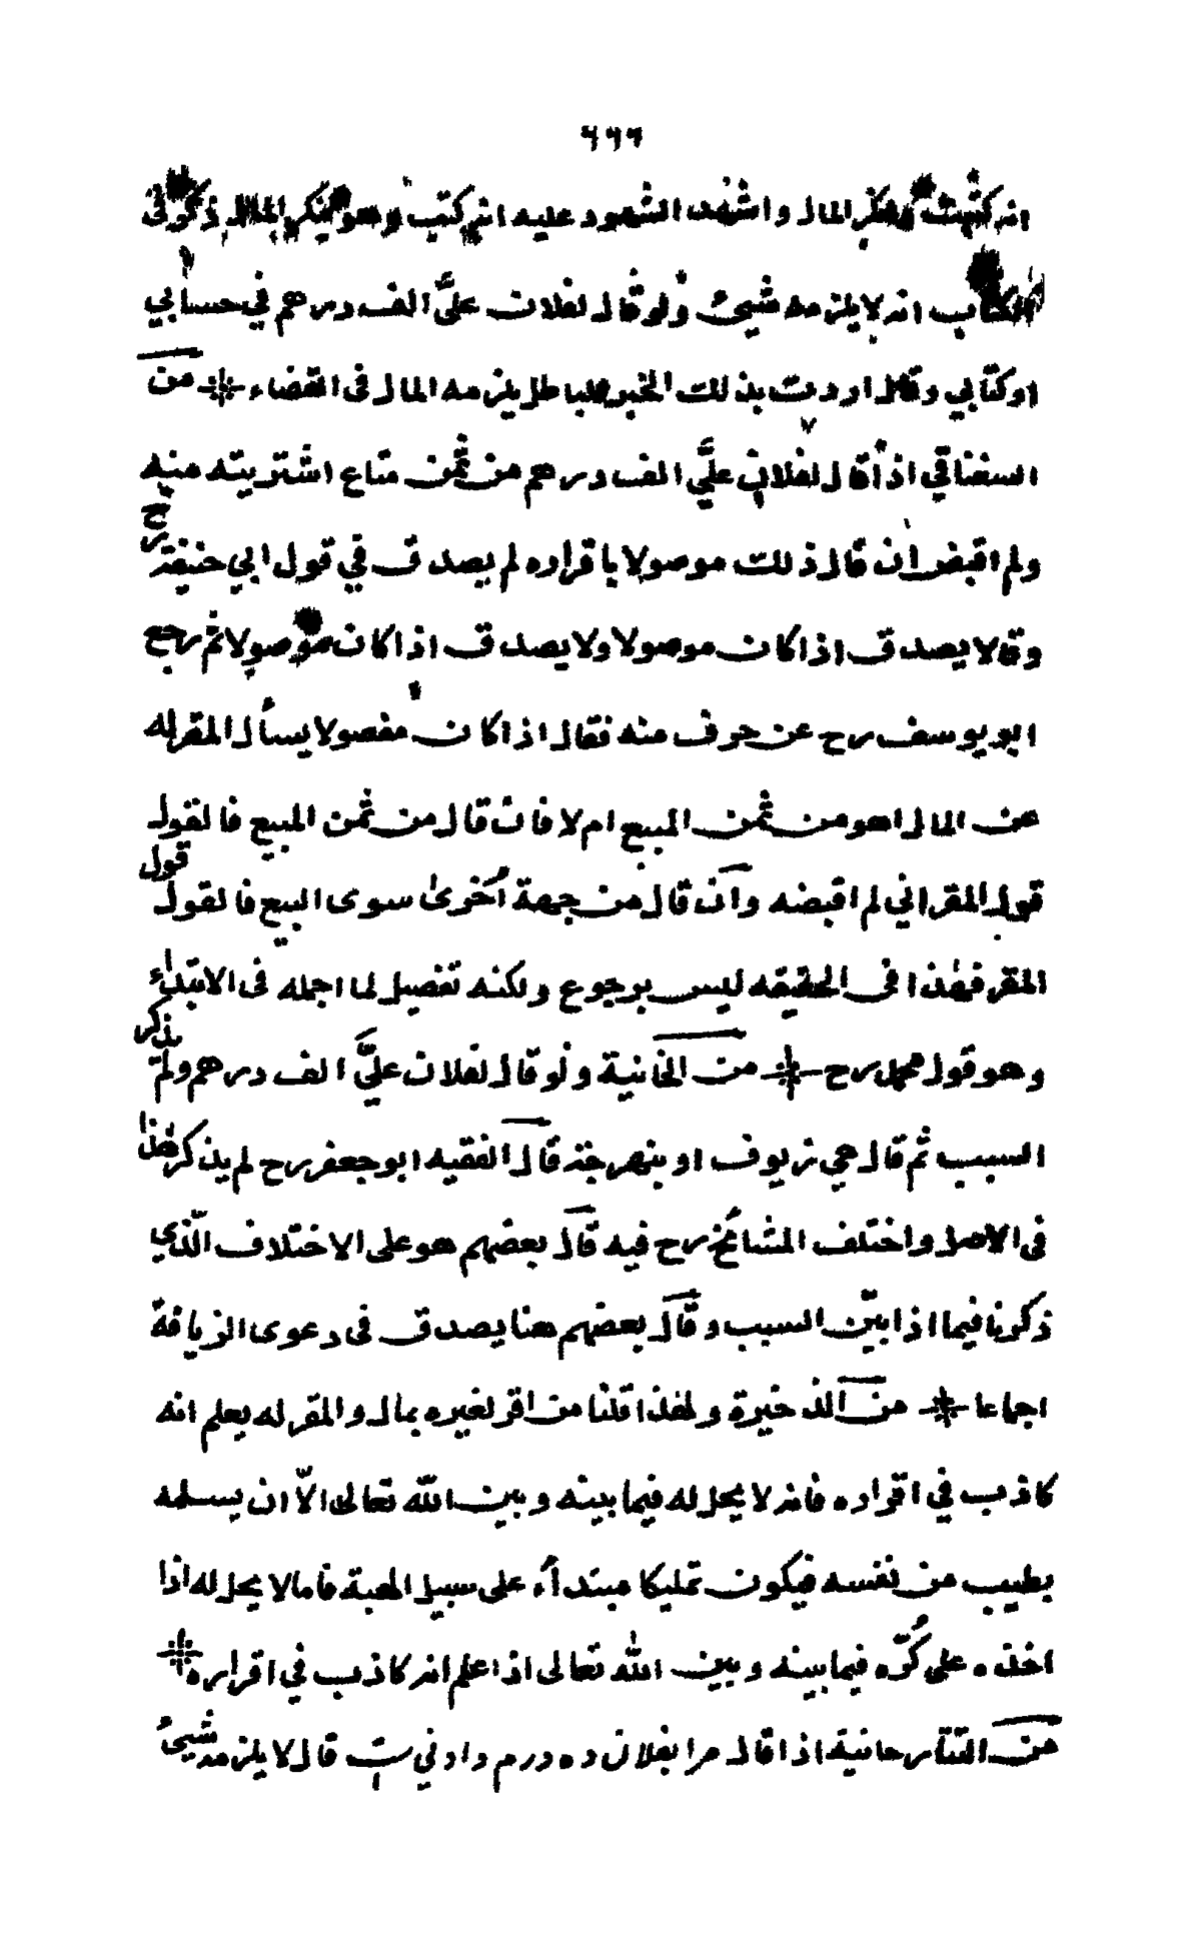 ٦٦٦
انه كتبت وينكر المال واشهد الشهود عليه انه كتب وهو ينكر المال ذكر في
الكتاب انه لا يلزمه شيئ ولو قال لفلان عليّ الف درهم في حسابي
او كتابي وقال اردت بذلك الخبر بالباطل يلزمه المال في القضاء من
السغناقي اذا قال لفلان عليّ الف درهم من ثمن متاع اشتريته منه
ولم اقبض ان قال ذلك موصولا باقراره لم يصدق في قول ابي حنيفة رح
وقالا يصدق اذا كان موصولا ولا يصدق اذا كان موصولا ثم رجع
ابو يوسف رح عن حرف منه فقال اذا كان مفصولا يسأل المقر له
عن المال اهو من ثمن المبيع ام لا فان قال من ثمن المبيع فالقول
قول المقر اني لم اقبضه وان قال من جهة أخرى سوى البيع فالقول قول
المقر فهذا في الحقيقه ليس برجوع ولكنه تفصيل لما اجمله في الابتداء
وهو قول محمد رح من الخانية ولو قال لفلان عليّ الف درهم ولم يذكر
السبب ثم قال هي زيوف او بنهرجة قال الفقيه ابو جعفر رح لم يذكر هذا
في الاصل واختلف المشائخ رح فيه قال بعضهم هو على الاختلاف الّذي
ذكرنا فيما اذا بيّن السبب وقال بعضهم هنا يصدق في دعوى الزيافة
اجماعا من الذخيرة ولهذا قلنا من اقر لغيره بمال والمقر له يعلم انه
كاذب في اقراره فانه لا يحل له فيما بينه وبين الله تعالى الّا ان يسلمه
بطيب من نفسه فيكون تمليكا مبتدأ على سبيل الهبة فاما لا يحل له اذا
اخذه على كُرّه فيما بينه وبين الله تعالى اذا علم انه كاذب في اقراره
من التتارخانية اذا قال مرا بفلان ده درم دادني ست قال لا يلزمه شيئ